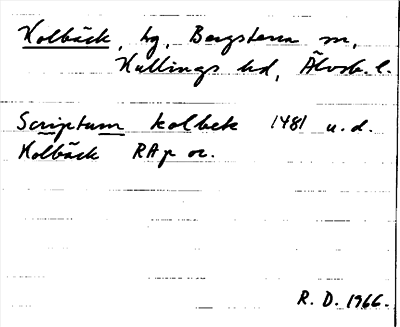 Kolbäck, hg, Bergstena sn,
Kullings hd, Älvsb. l.
Scriptum kolbek 1481 u.d.
Kolbäck RAp or.
R. D. 1966.